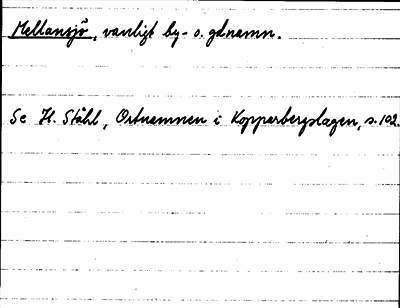 Mellansjö, vanligt by- o. gdnamn.
Se H. Ståhl, Ortnamnen i Kopparbergslagen, s. 102.